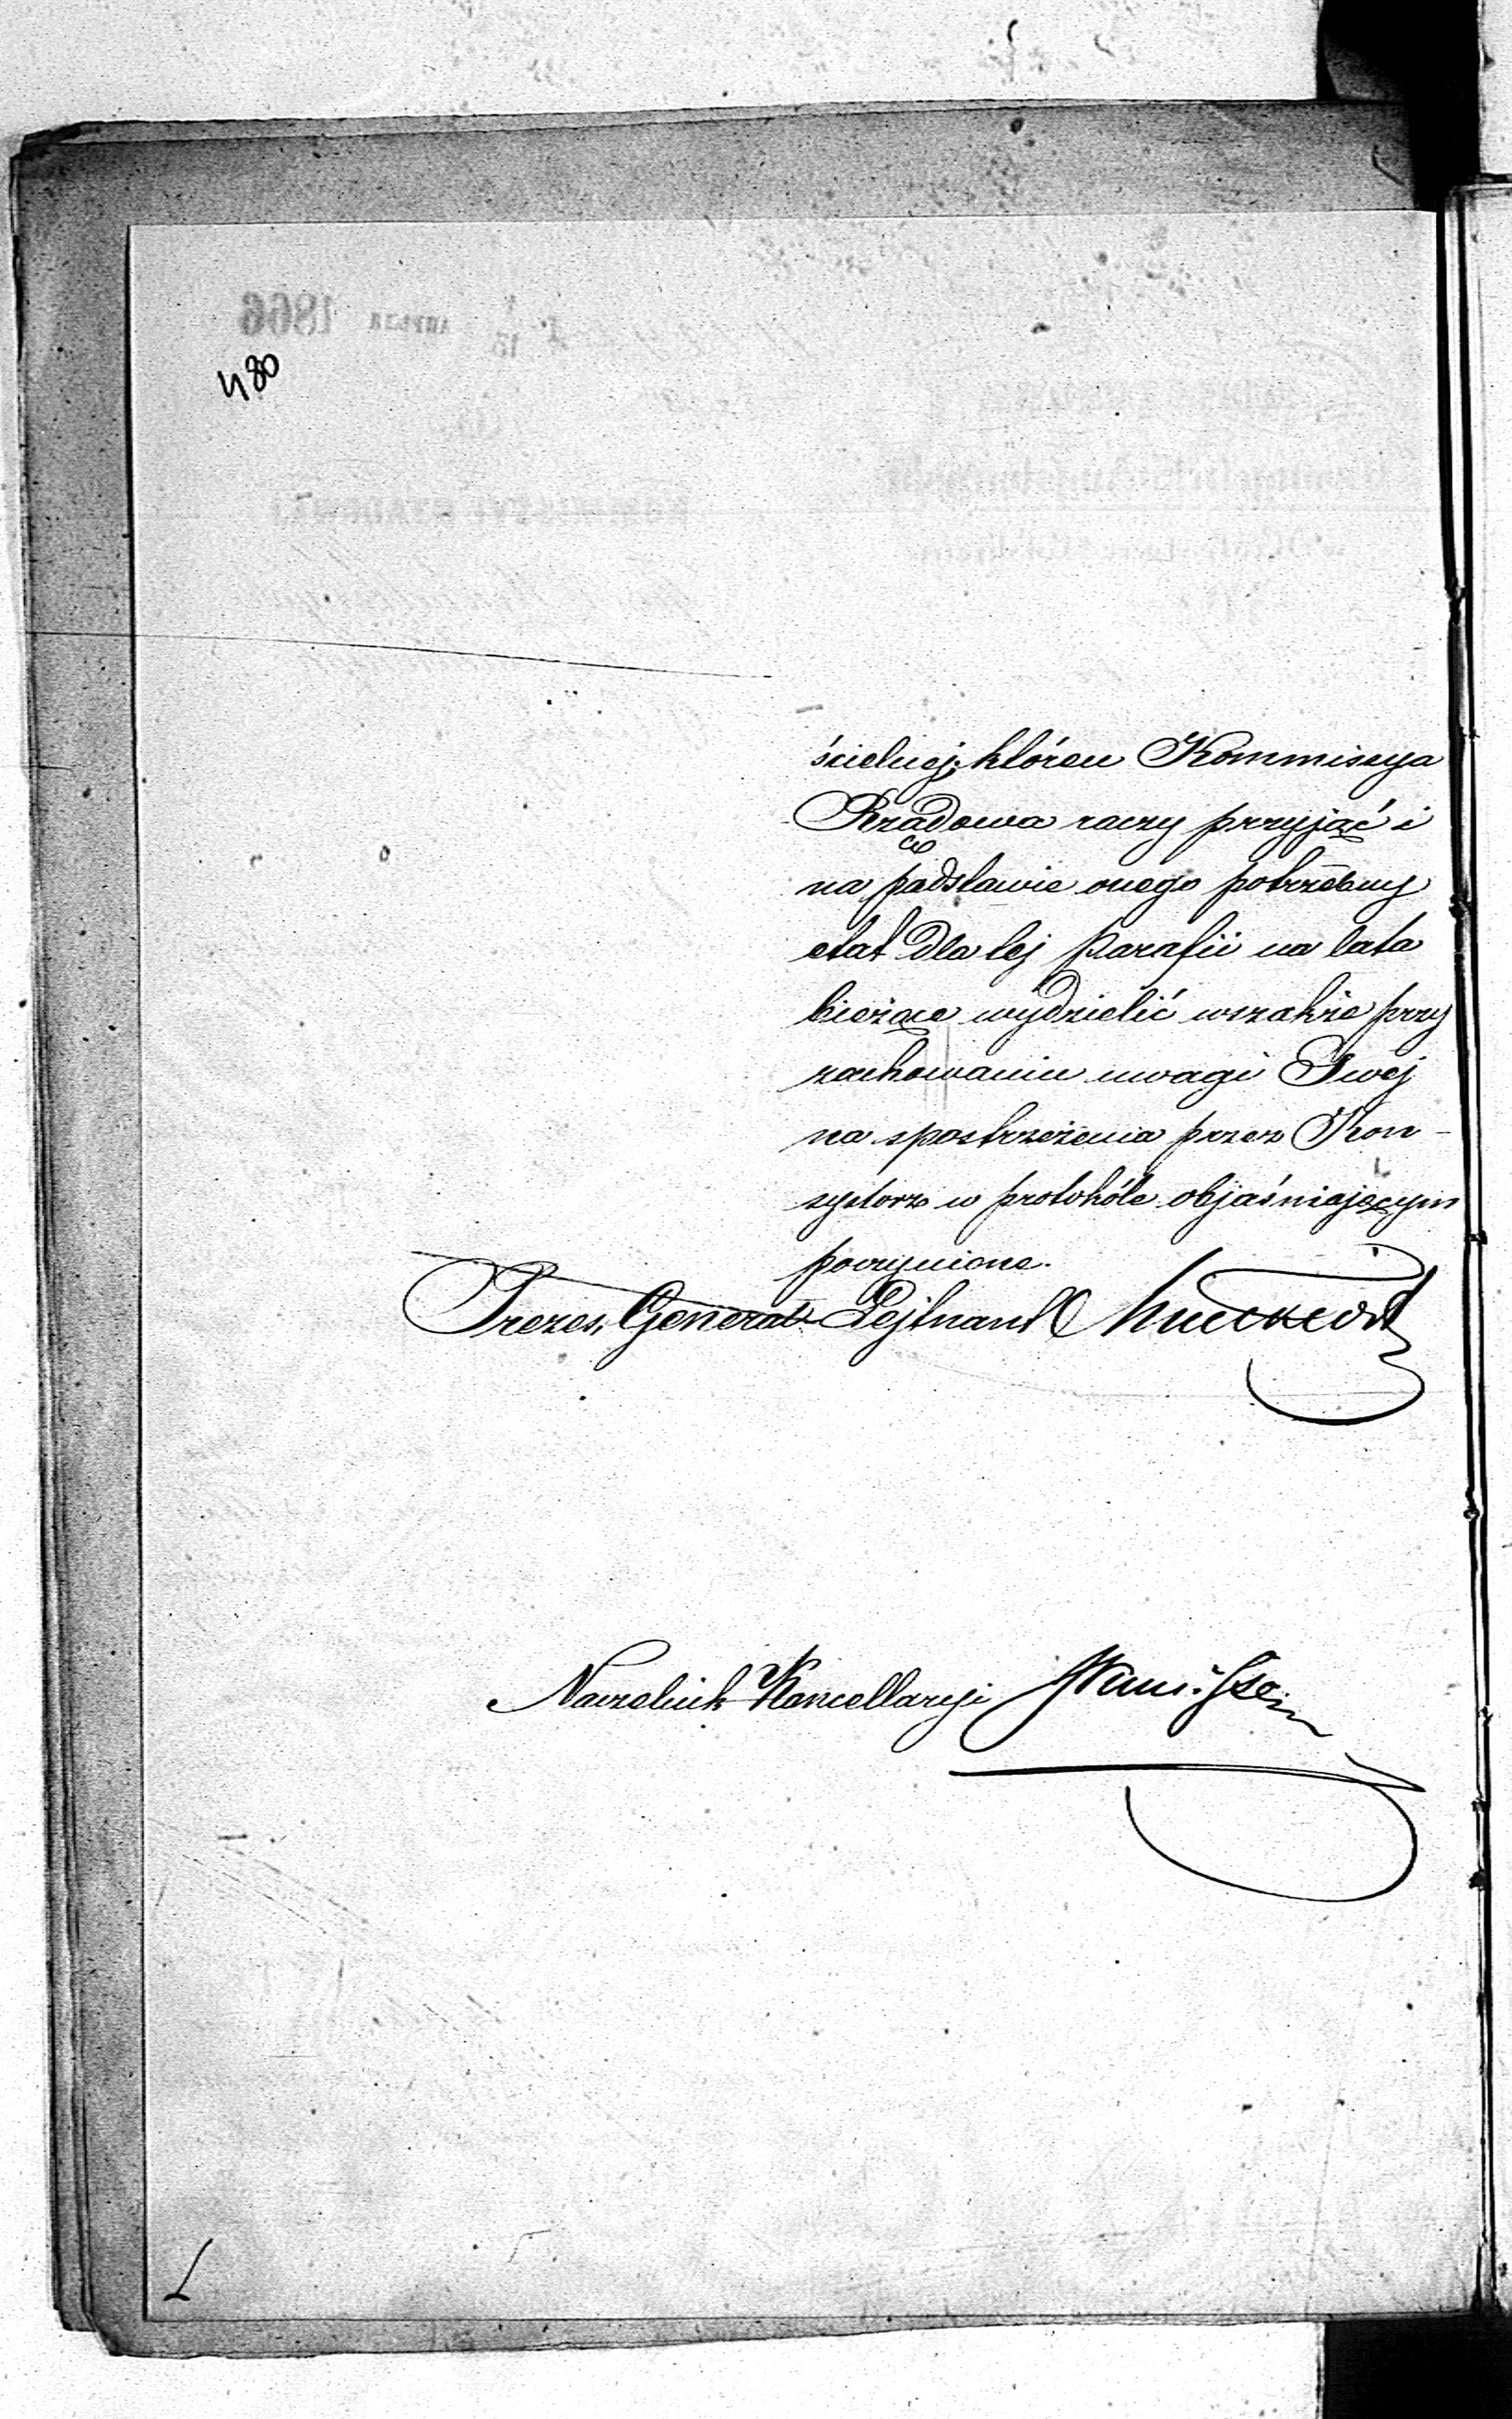 480
ścielnej, któren Kommissya
Rządowa raczy przyjąć i
na podstawie onego potrzebny
etat dla tej Parafii na lata
bieżące wydzielić wszakże przy
zachowaniu uwagi Swej
na spostrzeżenia przez Kon-
systorz w protokóle objaśniającym
poczynione.
Prezes, Generał-Lejtnant
Naczelnik Kancellaryi